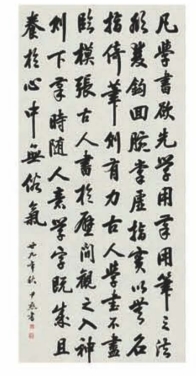 凡學書欲先學用筆用筆之法
欲雙鉤回腕掌虛指實以無名
指倚筆則有力古人學書不盡
臨模張古人書於壁間觀之入神
則下筆時隨人意學字既成且
養於心中無俗氣
廿九年秋 尹默書